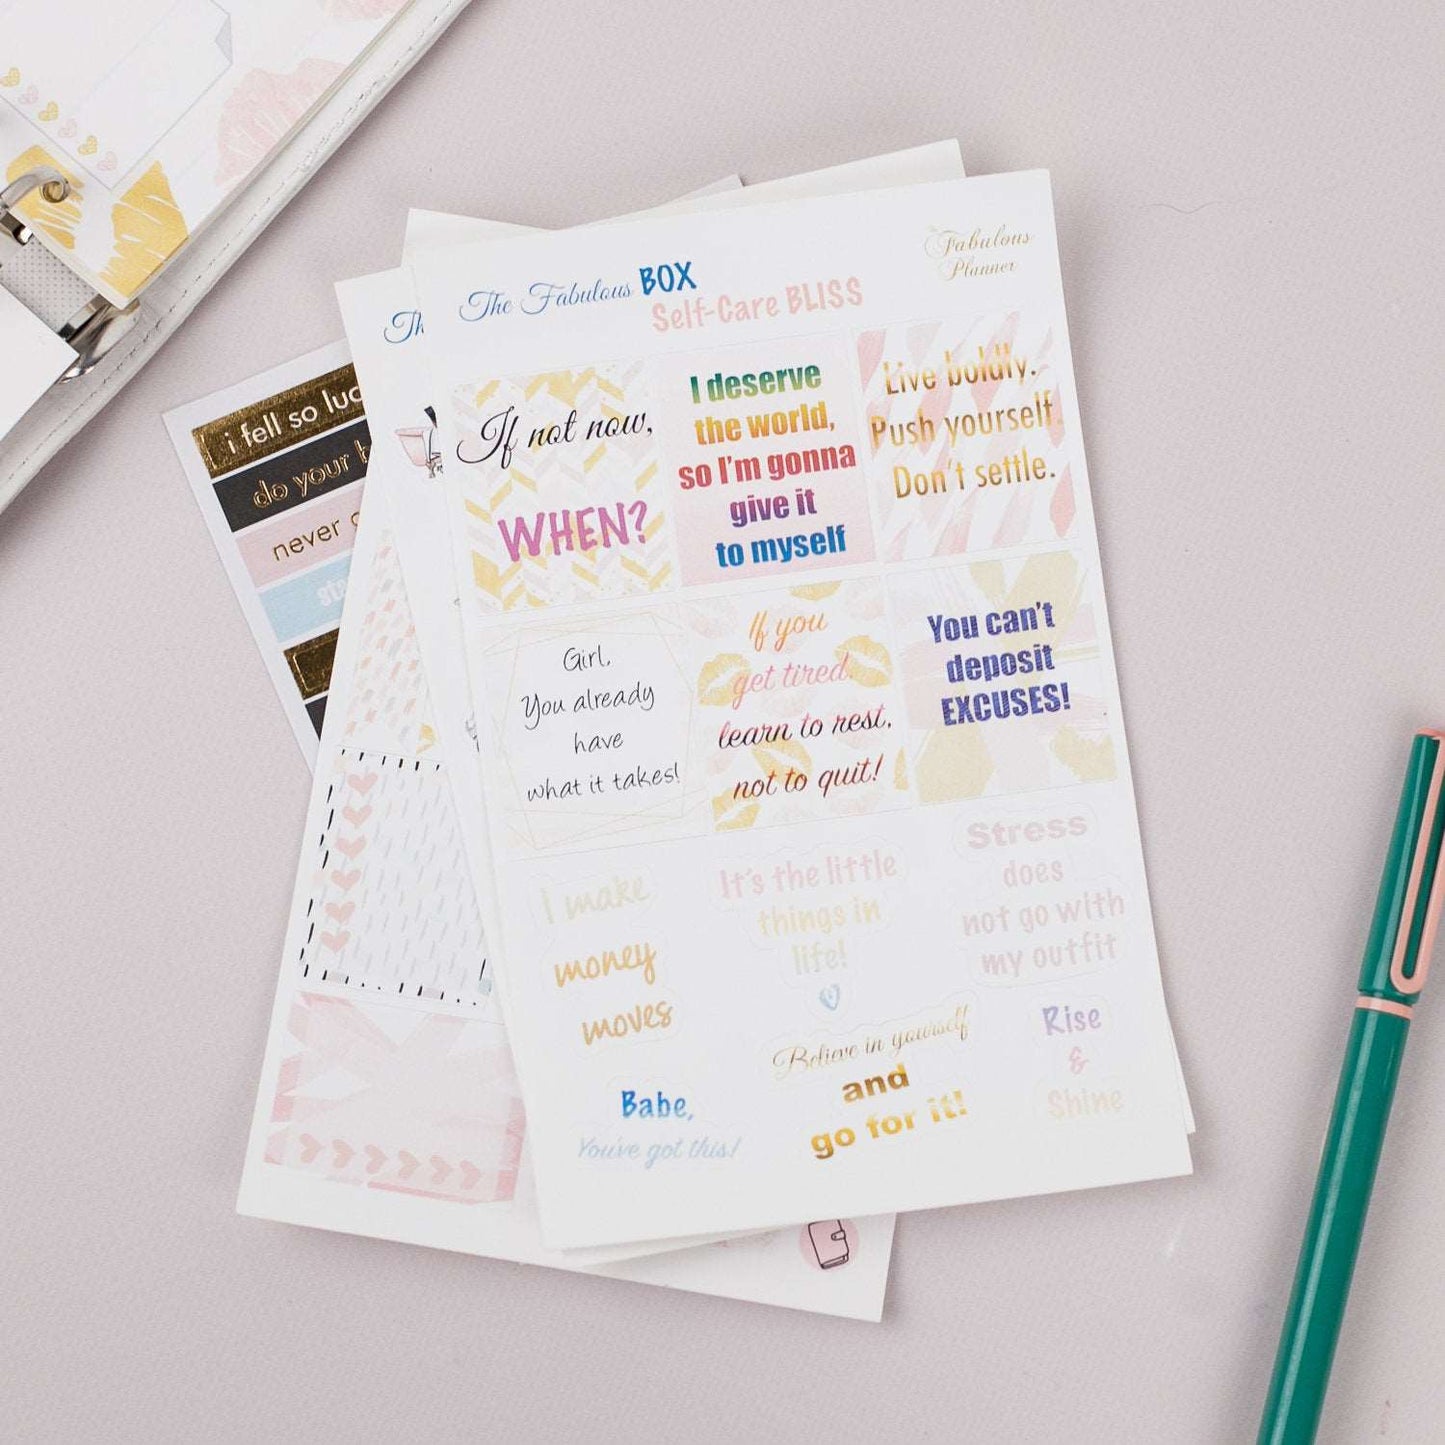 The Fabulous BOX
Self-Care BLISS
The
Fabulous
Planner
If not now,
WHEN?
I deserve
the world,
so I'm gonna
give it
to myself
Live boldly.
Push yourself.
Don't settle.
Girl,
You already
have
what it takes!
If you
get tired.
learn to rest,
not to quit!
You can't
deposit
EXCUSES!
I make
money
moves
It's the little
things in
life!
Stress
does
not go with
my outfit
Babe,
You've got this!
Believe in yourself
and
go for it!
Rise
&
Shine
i fell so
do your
never